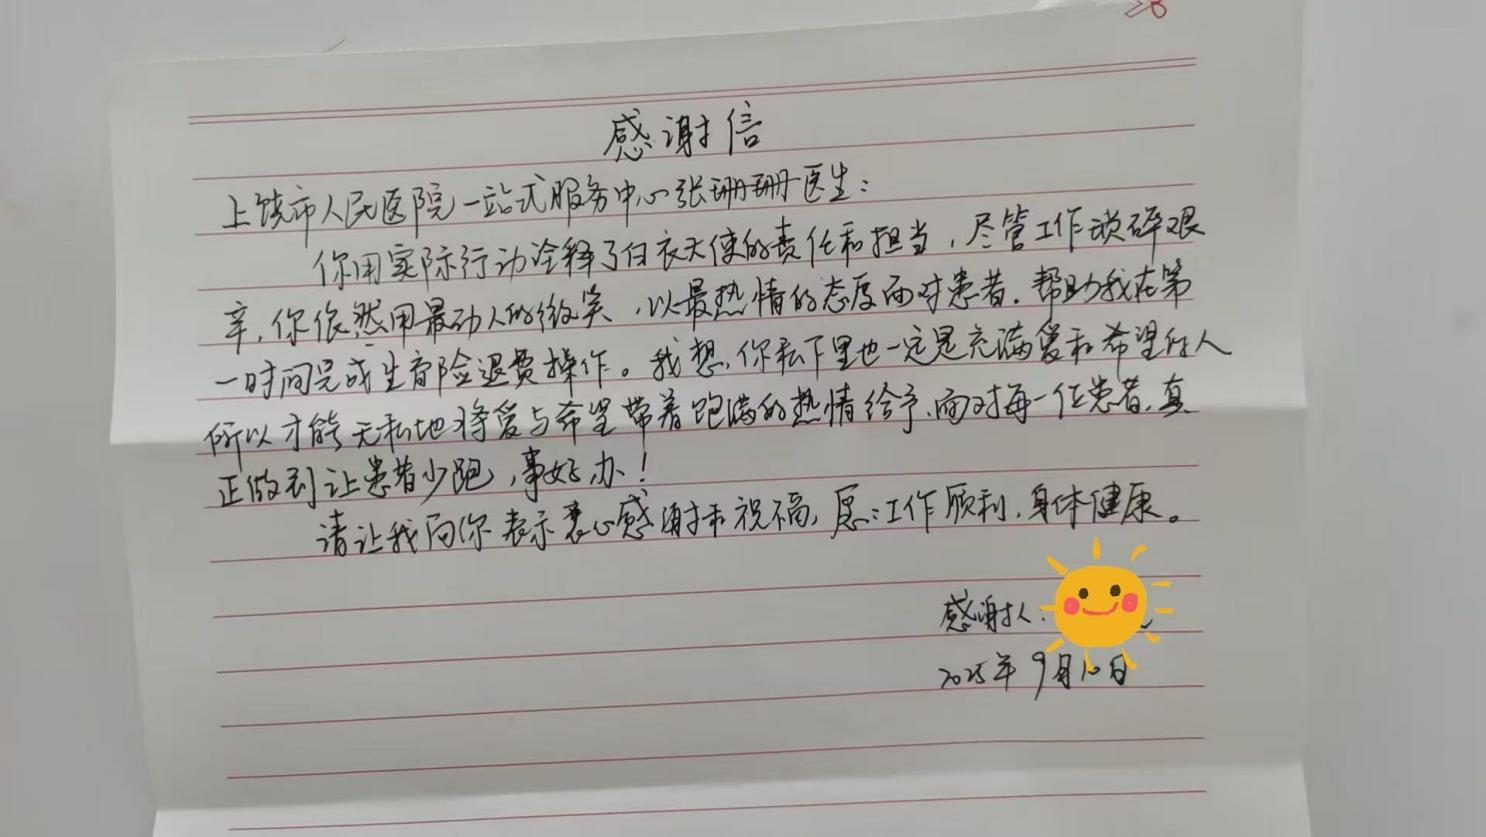 感谢信
上饶市人民医院一站式服务中心张珊珊医生：
你用实际行动诠释了白衣天使的责任和担当，尽管工作琐碎艰
辛，你依然用最动人的微笑，以最热情的态度面对患者．帮助我在第
一时间完成生育险退费操作。我想，你私下里也一定是充满爱和希望的人
所以才能无私地将爱与希望带着饱满的热情给予、面对每一位患者，真
正做到让患者少跑，事好办！
请让我向你表示衷心感谢和祝福，愿：工作顺利，身体健康。
感谢人：
2025年9月10日